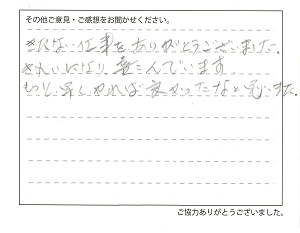 その他ご意見・ご感想をお聞かせください。
きたない仕事をありがとうございました。
きれいになり、喜んでいます。
もっと早くやれば良かったなと思いました。
ご協力ありがとうございました。